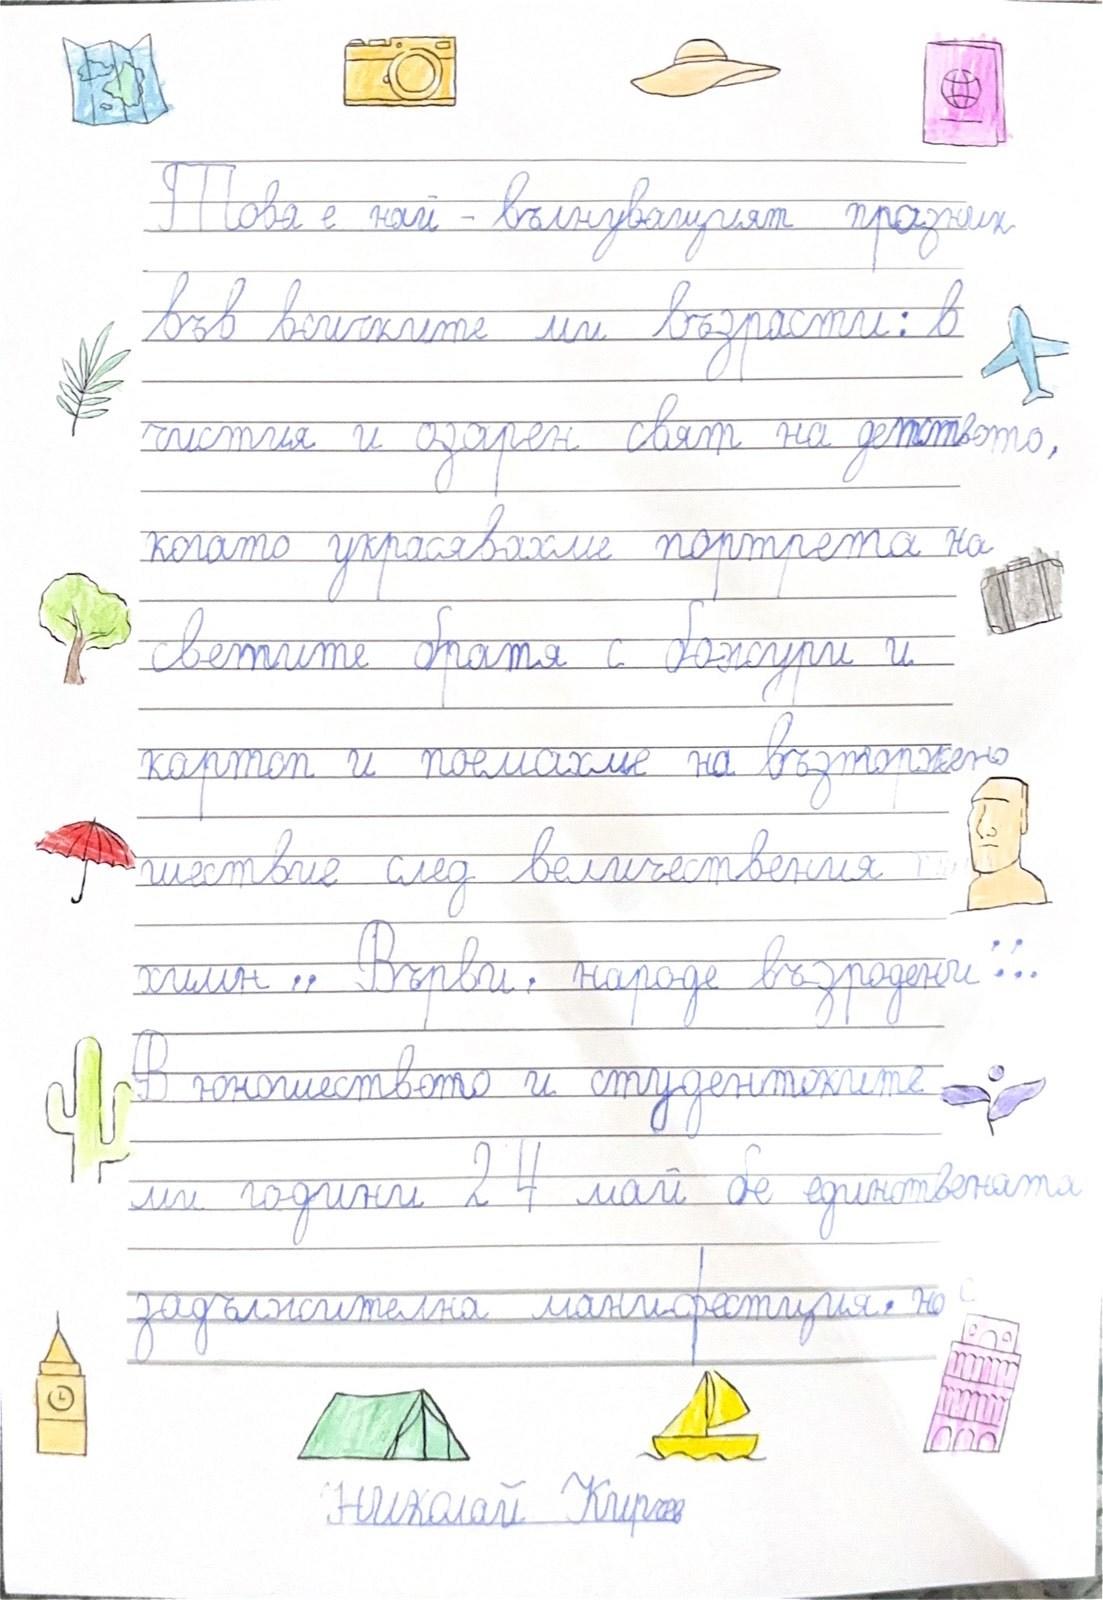 Това е най - вълнуващият празник
във всичките ми възрасти: в
чистия и озарен свят на детството,
когато украсявахме портрета на
светите братя с божури и
картоп и поемахме на възторжено
шествие след величествения
химн ,, Върви, народе възродени ''...
В юношеството и студентските
ми години 24 май бе единствената
задължителна манифестция, но
Николай